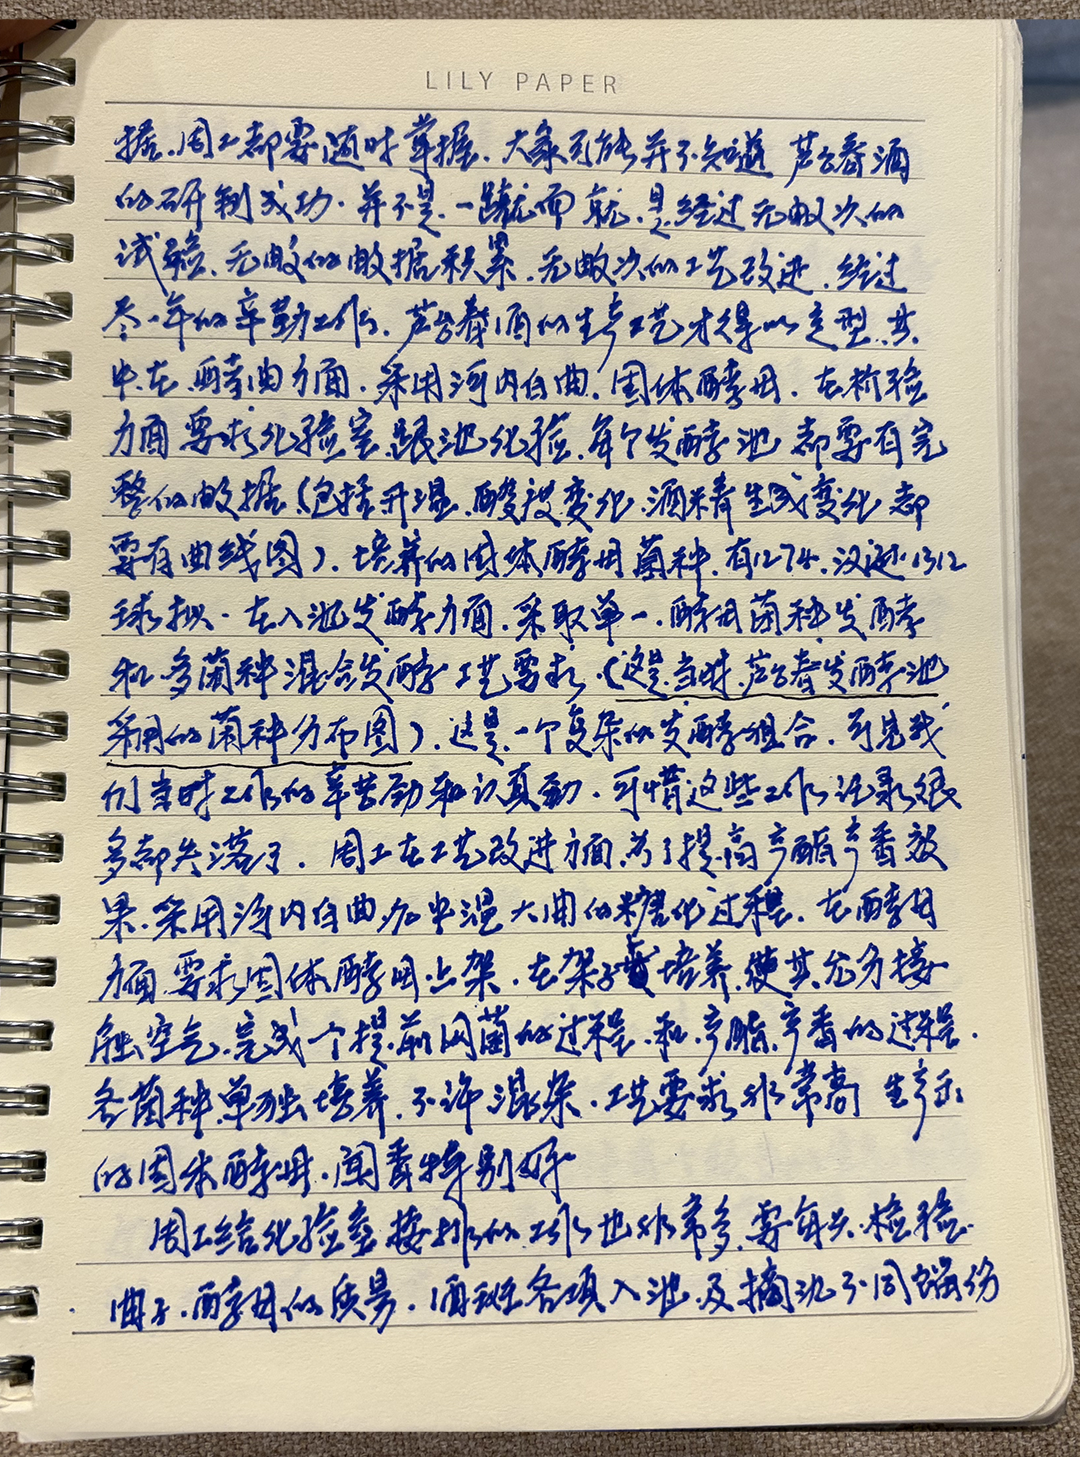 LILY PAPER
据.周工都要随时掌握.大家可能并不知道芦台春酒
的研制成功.并不是一蹴而就.是经过无数次的
试验、无数的数据积累、无数次的工艺改进.经过
一年的辛勤工作、芦台春酒的生产工艺才得以定型.其
中在酵曲方面.采用河内白曲.固体酵母.在检验
方面要求化验室跟池化验.每个发酵池都要有完
整的数据(包括升温、酸度变化.酒精生成变化都
要有曲线图).培养的固体酵母菌种.有1274.汉逊.1312
球拟.在入池发酵方面.采取单一.酵母菌种发酵
和多菌种混合发酵工艺要求.(这是当时芦台春发酵池
采用的菌种分布图).这是一个复杂的发酵组合.可见我
们当时工作的辛苦劲和认真劲.可惜这些工作记录很
多都失落了.周工在工艺改进方面.为了提高产酯产香效
果.采用河内白曲加中温大曲的糖化过程.在酵母
方面要求固体酵母上架.在架子培养.使其充分接
触空气.完成一个提前网菌的过程.和产酯.产香的过程.
各菌种单独培养.不许混杂.工艺要求非常高 生产
的固体酵母.闻香特别好
周工给化验室按排的工作也非常多.要每天.检验
曲子.酵母的质量.酒班各项入池.及摘沉不同